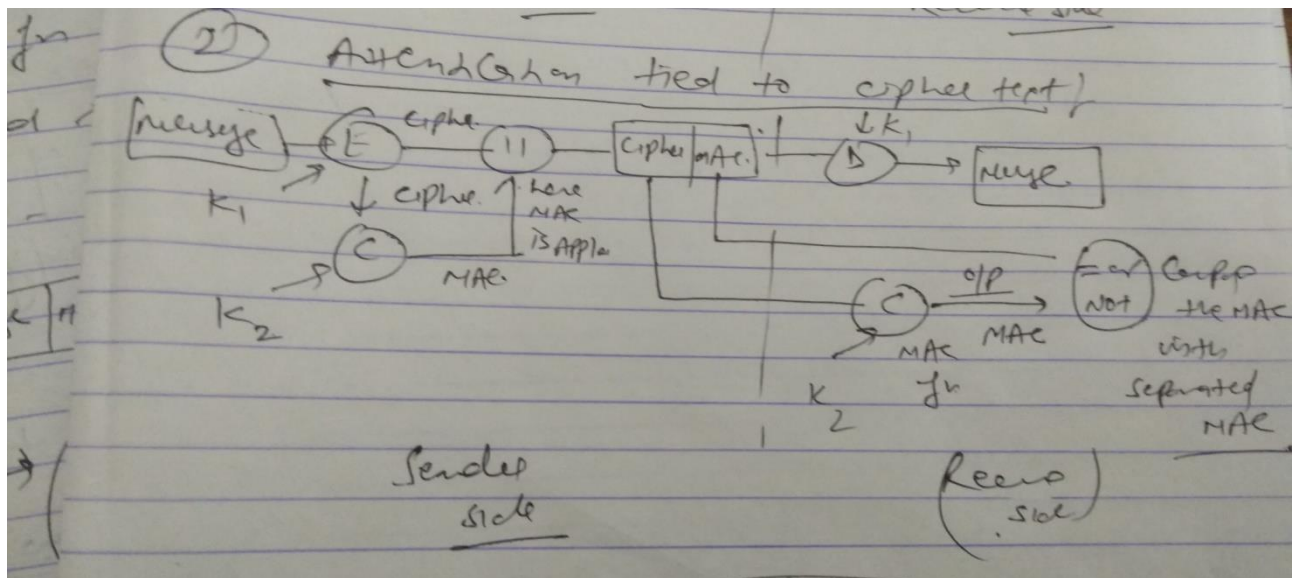 fn
2) Authentication tied to cipher text)
Message E Cipher || Cipher MAC ↓ K1 D Message
K1 ↓ cipher. here
MAC
is Appld
C MAC.
K2
C O/P MAC E or Not Compare
the MAC
with
separated
MAC
K2 MAC
fn
Sender
side
Receiver
side